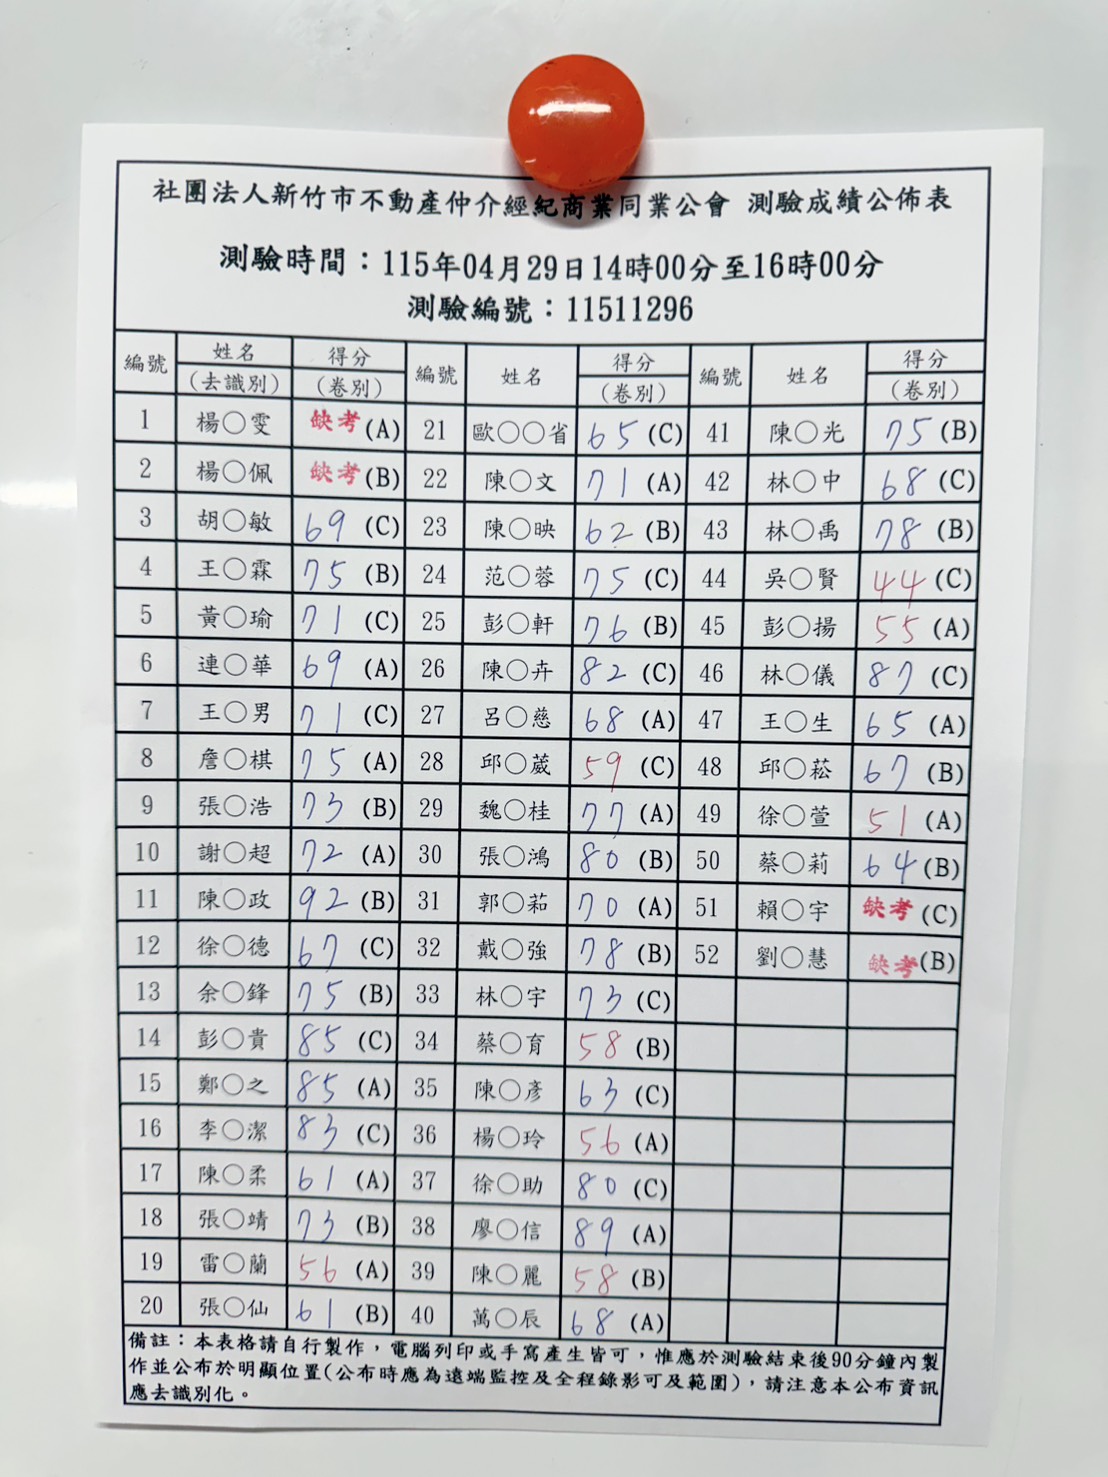 社團法人新竹市不動產仲介經紀商業同業公會 測驗成績公佈表
測驗時間：115年04月29日14時00分至16時00分
測驗編號：11511296
編號 姓名(去識別) 得分(卷別) 編號 姓名 得分(卷別) 編號 姓名 得分(卷別)
1 楊○雯 缺考(A) 21 歐○○省 65(C) 41 陳○光 75(B)
2 楊○佩 缺考(B) 22 陳○文 71(A) 42 林○中 68(C)
3 胡○敏 69(C) 23 陳○映 62(B) 43 林○禹 78(B)
4 王○霖 75(B) 24 范○蓉 75(C) 44 吳○賢 44(C)
5 黃○瑜 71(C) 25 彭○軒 76(B) 45 彭○揚 55(A)
6 連○華 69(A) 26 陳○卉 82(C) 46 林○儀 87(C)
7 王○男 71(C) 27 呂○慈 68(A) 47 王○生 65(A)
8 詹○棋 75(A) 28 邱○葳 59(C) 48 邱○菘 67(B)
9 張○浩 73(B) 29 魏○桂 77(A) 49 徐○萱 51(A)
10 謝○超 72(A) 30 張○鴻 80(B) 50 蔡○莉 64(B)
11 陳○政 92(B) 31 郭○茹 70(A) 51 賴○宇 缺考(C)
12 徐○德 67(C) 32 戴○強 78(B) 52 劉○慧 缺考(B)
13 余○鋒 75(B) 33 林○宇 73(C)
14 彭○貴 85(C) 34 蔡○育 58(B)
15 鄭○之 85(A) 35 陳○彥 63(C)
16 李○潔 83(C) 36 楊○玲 56(A)
17 陳○柔 61(A) 37 徐○助 80(C)
18 張○靖 73(B) 38 廖○信 89(A)
19 雷○蘭 56(A) 39 陳○麗 58(B)
20 張○仙 61(B) 40 萬○辰 68(A)
備註：本表格請自行製作，電腦列印或手寫產生皆可，惟應於測驗結束後90分鐘內製
作並公布於明顯位置(公布時應為遠端監控及全程錄影可及範圍)，請注意本公布資訊
應去識別化。